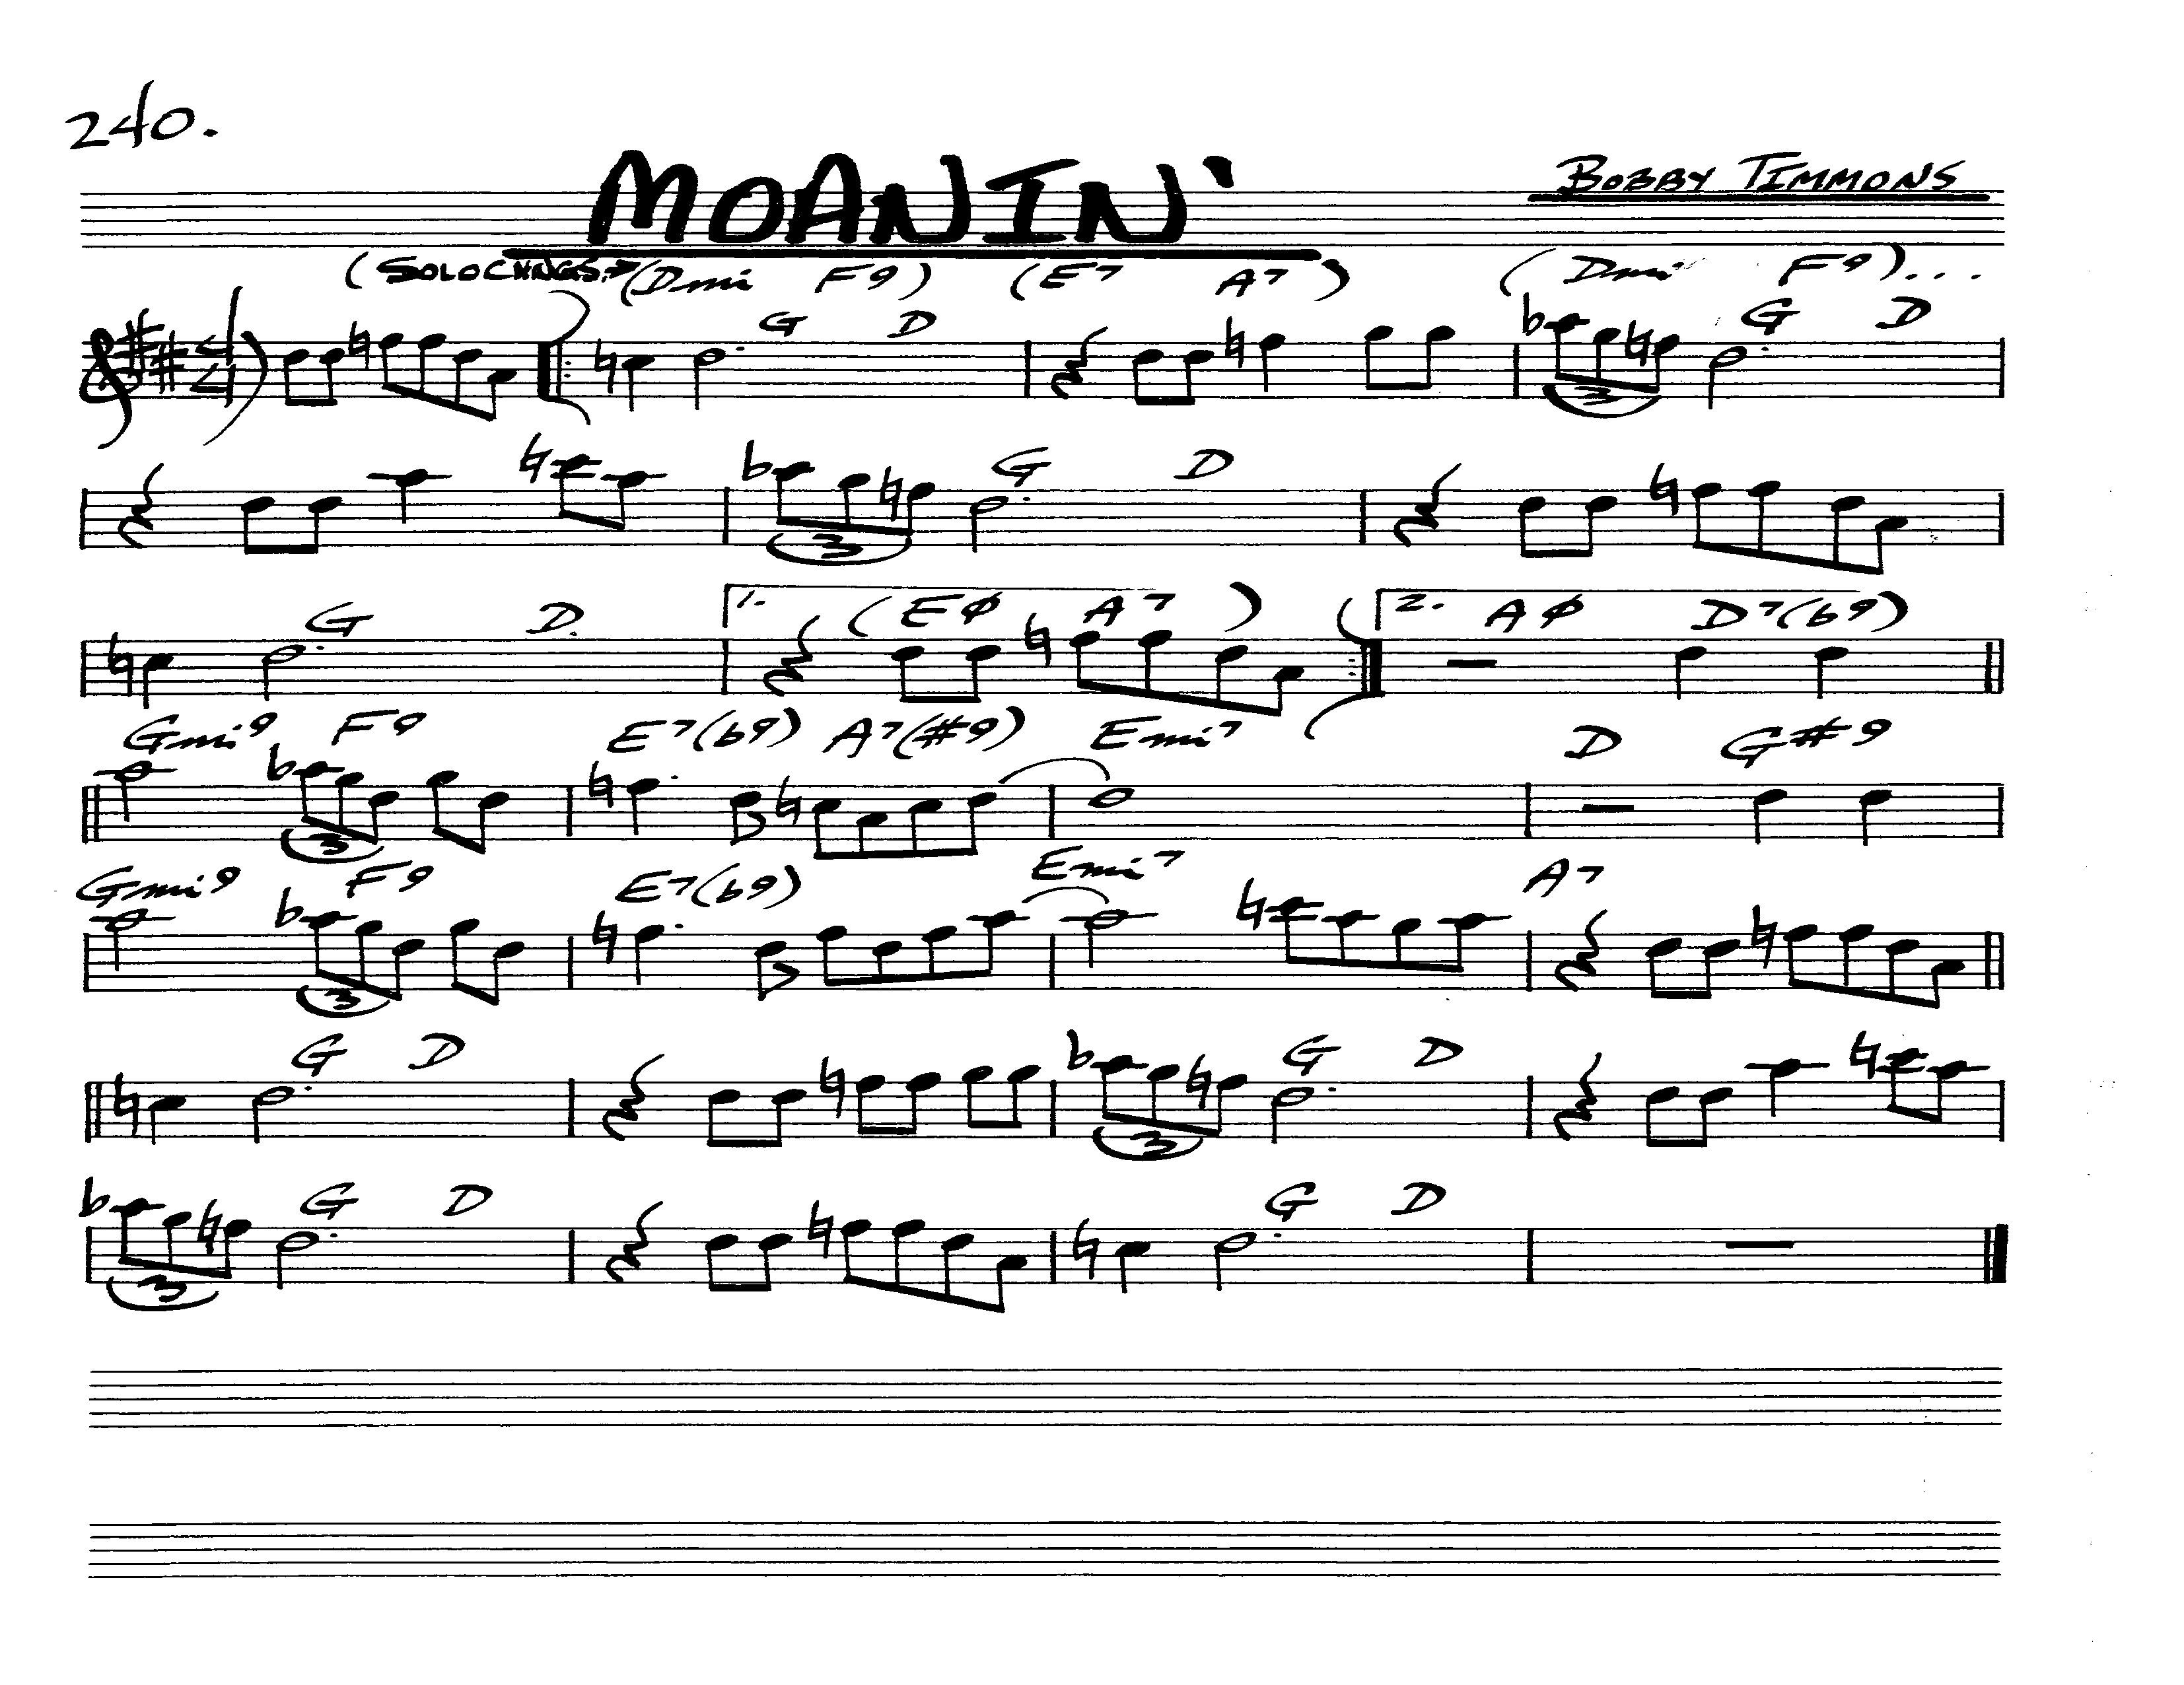 240.
MOANIN'
BOBBY TIMMONS
(SOLO CHNGS.) (Dmi F9) (E7 A7) (Dmi F9)...
G D G D
3
G D
3
G D 1. (EØ A7) 2. AØ D7(b9)
Gmi9 F9 E7(b9) A7(#9) Emi7 D G#9
3
Gmi9 F9 E7(b9) Emi7 A7
3
G D G D
3
G D G D
3